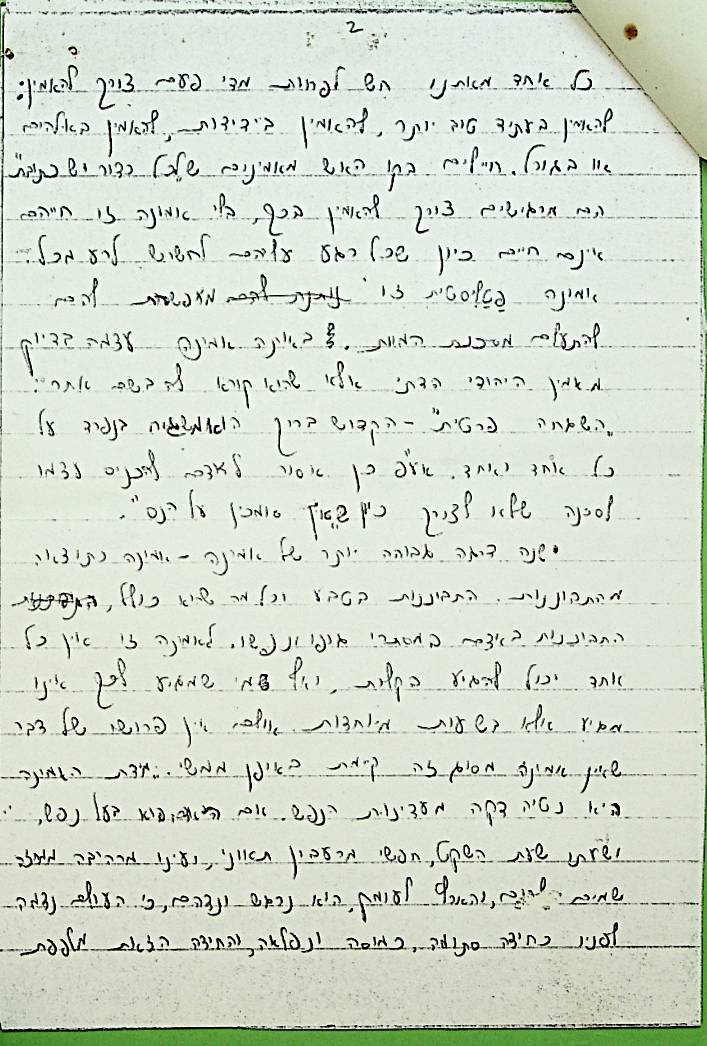 2
כל אחד מאתנו חש לפחות מדי פעם צורך להאמין:
להאמין בעתיד טוב יותר, להאמין בידידות, להאמין באלהים
או בגורל. חיילים בקו האש מאמינים שלכל כדור יש כתובת"
הם מרגישים צורך להאמין בכך, בלי אמונה זו חייהם
אינם חיים כיון שכל רגע עליהם לחשוש לרע מכל.
אמונה פטליסטית זו מאפשרת להם
להתעלם מסכנת המוות. באותה אמונה עצמה בדיוק
מאמין היהודי הדתי אלא שהוא קורא לה בשם אחר:
"השגחה פרטית" - הקדוש ברוך הוא משגיח בנפרד על
כל אחד ואחד. אע"פ כן אסור לאדם להכניס עצמו
לסכנה שלא לצורך כיון שאין סומכין על הנס".
ישנה דרגה גבוהה יותר של אמונה - אמונה כתוצאה
מהתבוננות. התבוננות בטבע וכל מה שהוא כולל,
התבוננות באדם במסתרי גופו ונפשו. לאמונה זו אין כל
אחד יכול להגיע בקלות, ואף מי שמגיע לכך אינו
מגיע אלא בשעות מיוחדות. אולם אין פרושו של דבר
שאין אמונה מסוג זה קיימת באופן ממשי. "מידת האמונה
היא נטיה דקה מעדינות הנפש. אם הוא בעל נפש,
ושעתו שעת השקט, חפשי מרעבון תאוני, ועינו מרהיבה ממחזה
שמים לרום, והארץ לעומק, הוא נרגש ונדהם, כי העולם נדמה
לפניו כחידה סתומה, כמוסה ונפלאה, והחידה הזאת מלפפת